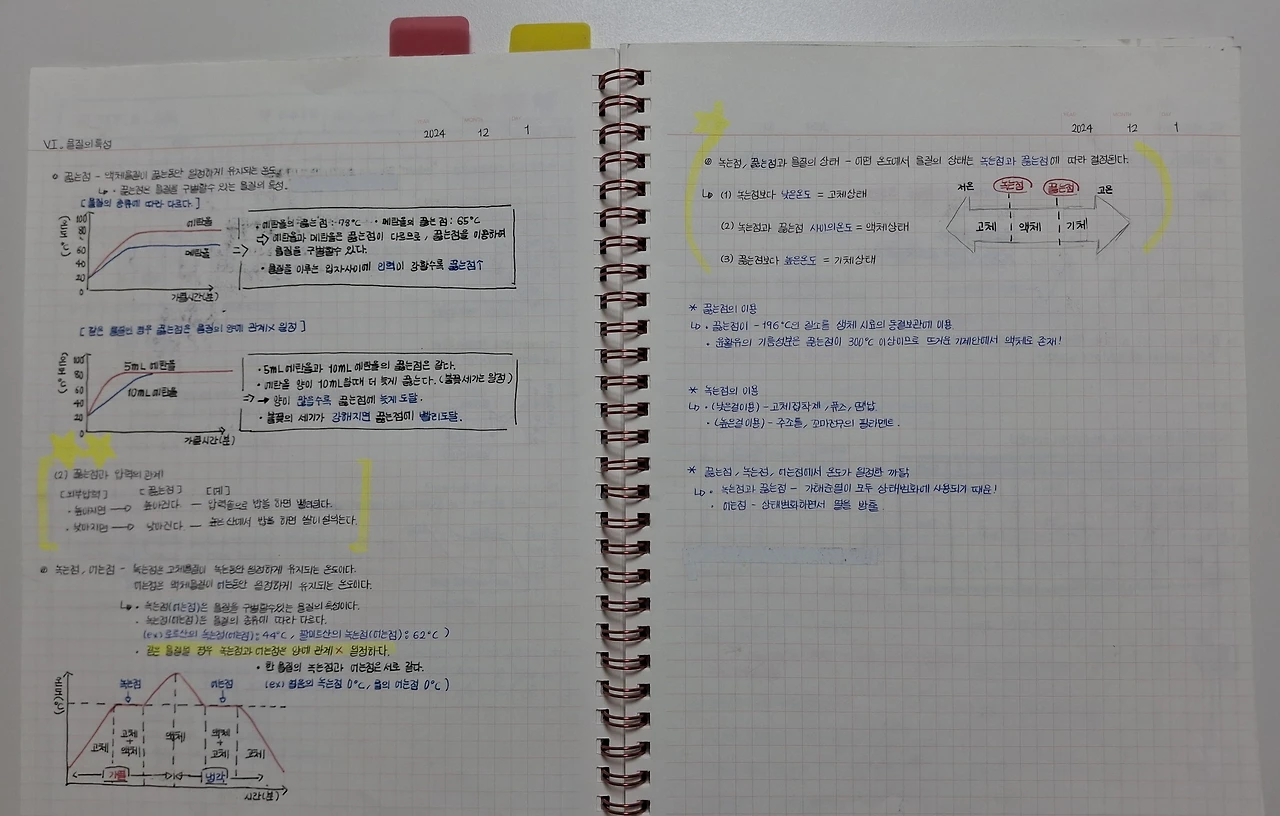 2024 12 1
VI. 물질의 특성
끓는점 - 액체물질이 끓는동안 일정하게 유지되는 온도
↳ • 끓는점은 물질을 구별할수 있는 물질의 특성.
[물질의 종류에 따라 다르다.]
온도(℃)
80
60
40
20
0
에탄올
메탄올
가열시간(분)
• 에탄올의 끓는점 : 78℃ • 메탄올의 끓는점 : 65℃
⇨ 에탄올과 메탄올은 끓는점이 다르므로, 끓는점을 이용하여
물질을 구별할수 있다.
• 물질을 이루는 입자사이에 인력이 강할수록 끓는점↑
[같은 물질인 경우 끓는점은 물질의 양에 관계× 일정]
온도(℃)
80
60
40
20
0
5mL 에탄올
10mL 에탄올
가열시간(분)
• 5mL 에탄올과 10mL 에탄올의 끓는점은 같다.
• 에탄올 양이 10mL일때 더 늦게 끓는다. (불꽃세기는 일정)
⇒ → 양이 많을수록 끓는점에 늦게 도달.
• 불꽃의 세기가 강해지면 끓는점에 빨리도달.
(2) 끓는점과 압력의 관계
[외부압력] [끓는점] [예]
• 높아지면 → 높아진다 — 압력솥으로 밥을 하면 빨리된다.
• 낮아지면 → 낮아진다 — 높은산에서 밥을 하면 쌀이 설익는다.
녹는점, 어는점 - 녹는점은 고체물질이 녹는동안 일정하게 유지되는 온도이다.
어는점은 액체물질이 어는동안 일정하게 유지되는 온도이다.
↳ • 녹는점(어는점)은 물질을 구별할수있는 물질의 특성이다.
• 녹는점(어는점)은 물질의 종류에 따라 다르다.
(ex) 로르산의 녹는점(어는점) : 44℃, 팔미트산의 녹는점(어는점) : 62℃ )
• 같은 물질일 경우 녹는점과 어는점은 양에 관계× 일정하다.
• 한 물질의 녹는점과 어는점은 서로 같다.
(ex) 얼음의 녹는점 0℃, 물의 어는점 0℃ )
온도(℃)
녹는점
어는점
고체
고체 + 액체
액체
액체 + 고체
고체
가열
냉각
시간(분)
2024 12 1
녹는점, 끓는점과 물질의 상태 - 어떤 온도에서 물질의 상태는 녹는점과 끓는점에 따라 결정된다.
↳ (1) 녹는점보다 낮은온도 = 고체상태
(2) 녹는점과 끓는점 사이의온도 = 액체상태
(3) 끓는점보다 높은온도 = 기체상태
저온 녹는점 끓는점 고온
고체 액체 기체
* 끓는점의 이용
↳ • 끓는점이 -196℃인 질소를 생체 시료의 동결보관에 이용
• 윤활유의 기름성분은 끓는점이 300℃ 이상이므로 뜨거운 기계안에서 액체로 존재!
* 녹는점의 이용
↳ • (낮은걸이용) - 고체접착제, 퓨즈, 땜납
• (높은걸이용) - 주조틀, 꼬마전구의 필라멘트.
* 끓는점, 녹는점, 어는점에서 온도가 일정한 까닭
↳ • 녹는점과 끓는점 - 가해준열이 모두 상태변화에 사용되기 때문!
• 어는점 - 상태변화하면서 열을 방출